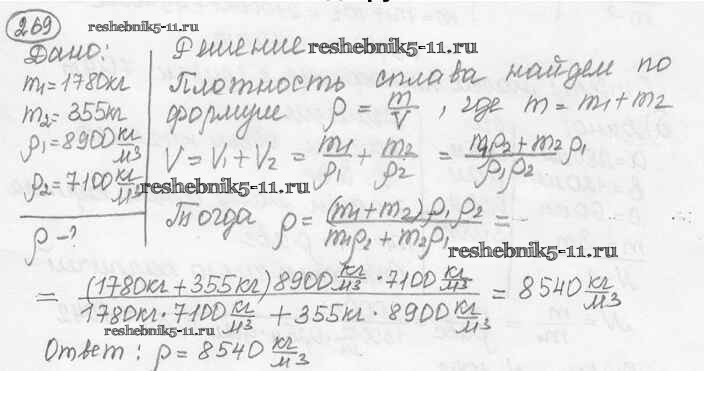 269
reshebnik5-11.ru
Дано:
m₁=1780кг
m₂=355кг
ρ₁=8900 кг/м3
ρ₂=7100 кг/м3
reshebnik5-11.ru
ρ-?
Решение reshebnik5-11.ru
Плотность сплава найдем по
формуле ρ = m/V , где m = m₁+m₂
V = V₁+V₂ = m₁/ρ₁ + m₂/ρ₂ = (m₁ρ₂+m₂ρ₁)/(ρ₁ρ₂)
Тогда ρ = (m₁+m₂)ρ₁ρ₂/(m₁ρ₂+m₂ρ₁) =
reshebnik5-11.ru
= (1780кг+355кг)8900 кг/м3 · 7100 кг/м3 / (1780кг·7100 кг/м3 + 355кг·8900 кг/м3) = 8540 кг/м3
reshebnik5-11.ru
Ответ: ρ = 8540 кг/м3